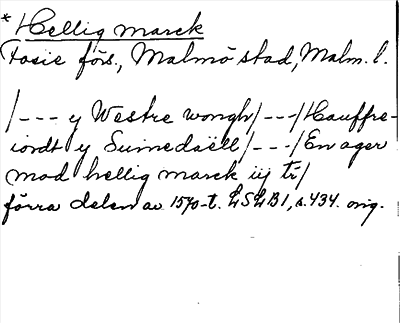 * Hellig marck
Fosie förs., Malmö stad, Malm. l.
/--- y Westre wongh/---/Hauffre-
iordt y Suinedaëll/---/En ager
mod hellig marck iij tr/
förra delen av 1570-t. LSLB1, s. 434. orig.